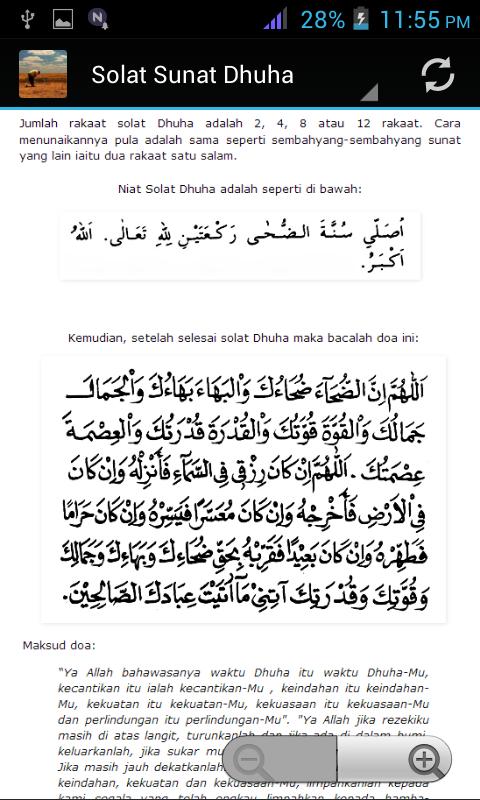 28% 11:55 PM
Solat Sunat Dhuha
Jumlah rakaat solat Dhuha adalah 2, 4, 8 atau 12 rakaat. Cara
menunaikannya pula adalah sama seperti sembahyang-sembahyang sunat
yang lain iaitu dua rakaat satu salam.
Niat Solat Dhuha adalah seperti di bawah:
اُصَلِّي سُنَّةَ الضُّحٰى رَكْعَتَيْنِ لِلّٰهِ تَعَالٰى. اَللهُ
اَكْبَرُ.
Kemudian, setelah selesai solat Dhuha maka bacalah doa ini:
اَللّٰهُمَّ اِنَّ الضُّحَآءَ ضُحَاءُكَ وَالْبَهَاءَ بَهَاءُكَ وَالْجَمَالَ
جَمَالُكَ وَالْقُوَّةَ قُوَّتُكَ وَالْقُدْرَةَ قُدْرَتُكَ وَالْعِصْمَةَ
عِصْمَتُكَ. اَللّٰهُمَّ اِنْ كَانَ رِزْقِي فِي السَّمَآءِ فَأَنْزِلْهُ وَاِنْ كَانَ
فِي اْلاَرْضِ فَأَخْرِجْهُ وَاِنْ كَانَ مُعَسَّرًا فَيَسِّرْهُ وَاِنْ كَانَ حَرَامًا
فَطَهِّرْهُ وَاِنْ كَانَ بَعِيْدًا فَقَرِّبْهُ بِحَقِّ ضُحَاءِكَ وَبَهَاءِكَ وَجَمَالِكَ
وَقُوَّتِكَ وَقُدْرَتِكَ آتِنِيْ مَآاَتَيْتَ عِبَادَكَ الصَّالِحِيْنَ.
Maksud doa:
"Ya Allah bahawasanya waktu Dhuha itu waktu Dhuha-Mu,
kecantikan itu ialah kecantikan-Mu , keindahan itu keindahan-
Mu, kekuatan itu kekuatan-Mu, kekuasaan itu kekuasaan-Mu
dan perlindungan itu perlindungan-Mu". "Ya Allah jika rezekiku
masih di atas langit, turunkanlah dan jika ada di dalam bumi,
keluarkanlah, jika sukar
Jika masih jauh dekatkanlah
keindahan, kekuatan dan kekuasaan-Mu, limpahkanlah kepada
kami segala yang telah engkau limpahkan kepada hamba-